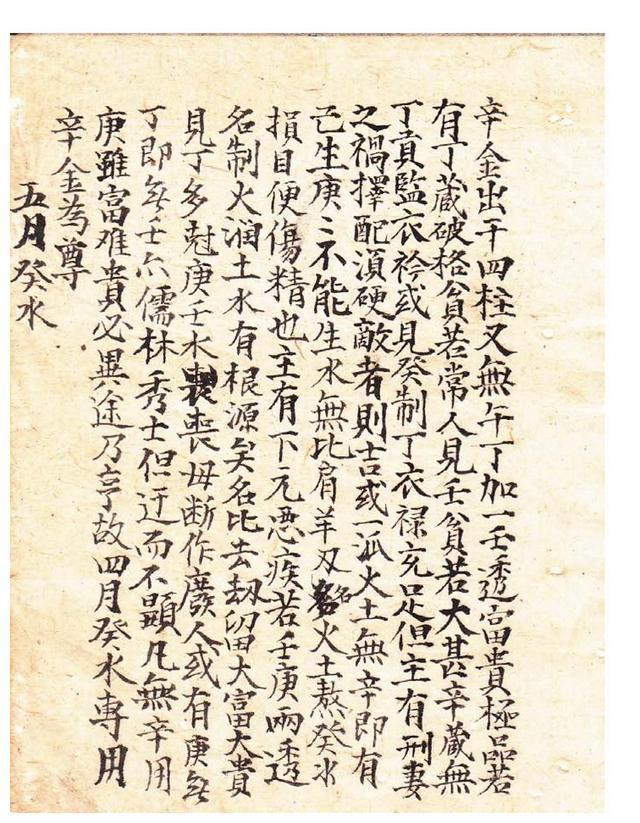 辛金出干四柱又無午丁加一壬透富貴極品若
有丁藏破格貧若常人見壬貧若大甚辛藏無
丁貢監衣衿或見癸制丁衣禄充足但主有刑妻
之禍擇配湏硬敵者則吉或一派火土無辛即有
己生庚〻不能生水無比肩羊刄名火土熬癸水
損目便傷精也主有下元惡疾若壬庚兩透
名制火润土水有根源矣名比去刼留大富大貴
見丁多尅庚壬水喪母断作廢人或有庚無
丁即無壬亦儒林秀士但迂而不顯凡無辛用
庚雖富难貴必異途乃亨故四月癸水專用
辛金為尊
五月癸水